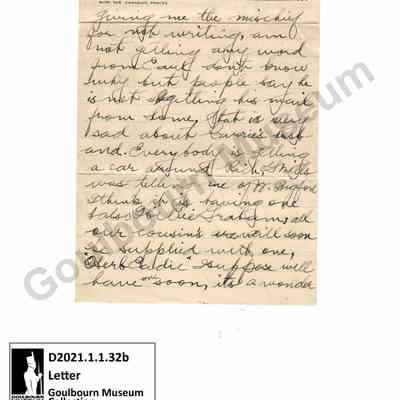 WITH THE CANADIAN FORCES
Giving me the mischief
for not writing, am
not getting any word
from Earl dont know
why but people say he
is not getting his mail
from home, that is very
sad about Carrie's
and. Everybody is getting
a car around Rich,
was telling me of W.
I think it is having one
also
our cousins are will soon
be supplied with one,
Herb Eddie I suppose will
have one soon, its a wonder
Goulbourn Museum
Goulbourn Museum
D2021.1.1.32b
Letter
Goulbourn Museum
Collection
GOULBOURN